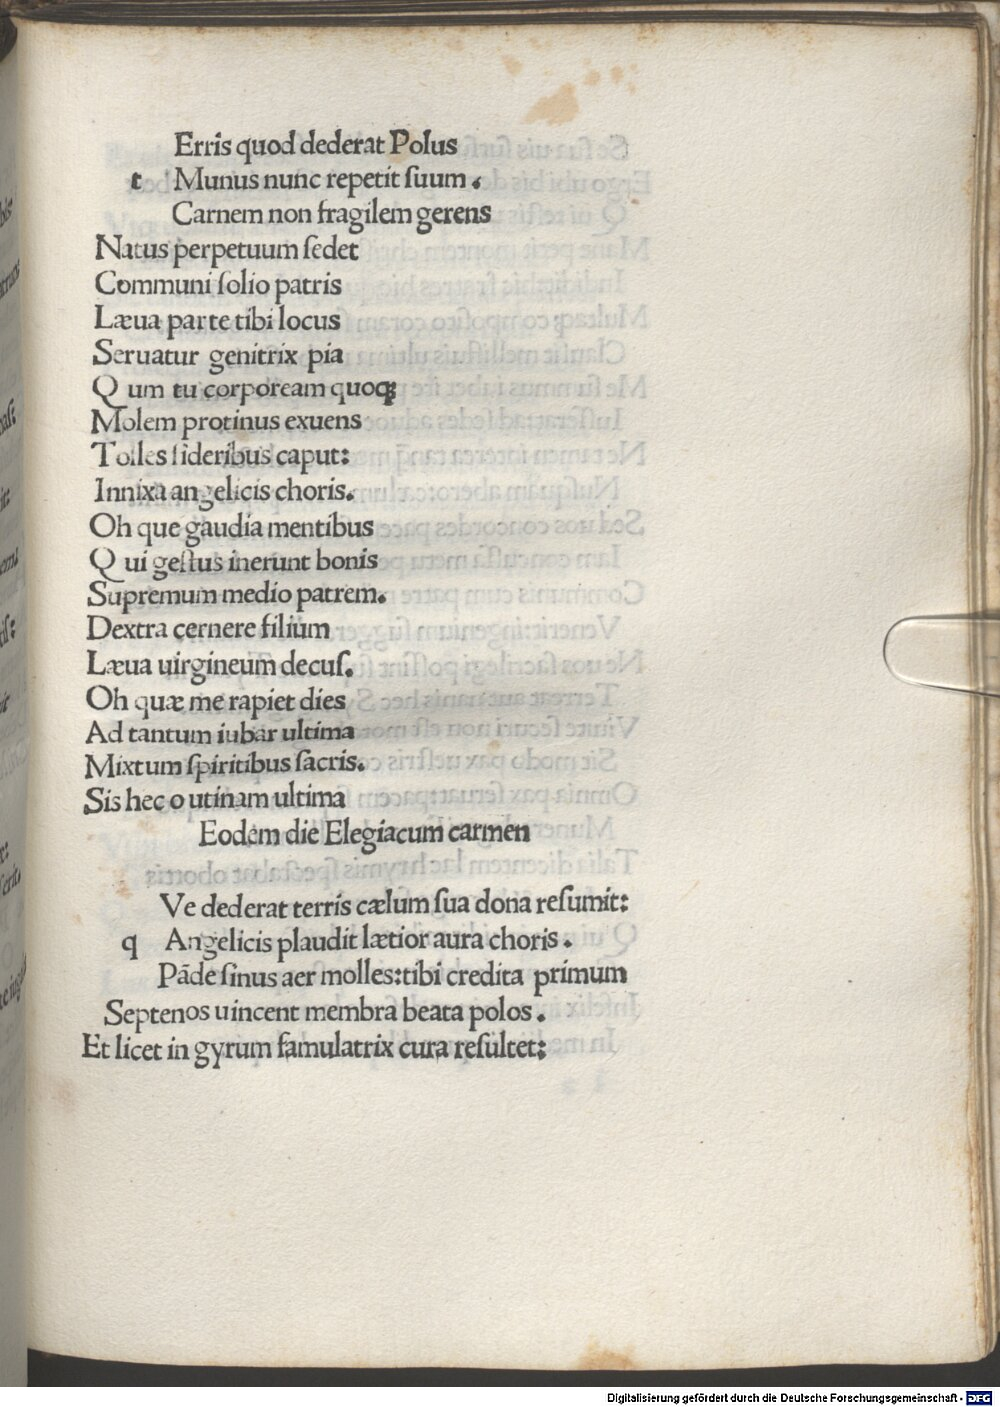 Erris quod dederat Polus
t Munus nunc repetit ſuum.
Carnem non fragilem gerens
Natus perpetuum ſedet
Communi ſolio patris
Læua parte tibi locus
Seruatur genitrix pia
Q um tu corpoream quoqꝫ
Molem protinus exuens
Tolles ſideribus caput:
Innixa angelicis choris.
Oh que gaudia mentibus
Q ui geſtus inerunt bonis
Supremum medio patrem.
Dextra cernere filium
Læua uirgineum decuſ.
Oh quæ me rapiet dies
Ad tantum iubar ultima
Mixtum ſpiritibus ſacris.
Sis hec o utinam ultima
Eodem die Elegiacum carmen
Ve dederat terris cælum ſua dona reſumit:
q Angelicis plaudit lætior aura choris.
Pāde ſinus aer molles:tibi credita primum
Septenos uincent membra beata polos.
Et licet in gyrum famulatrix cura reſultet:
Digitalisierung gefördert durch die Deutsche Forschungsgemeinschaft - DFG